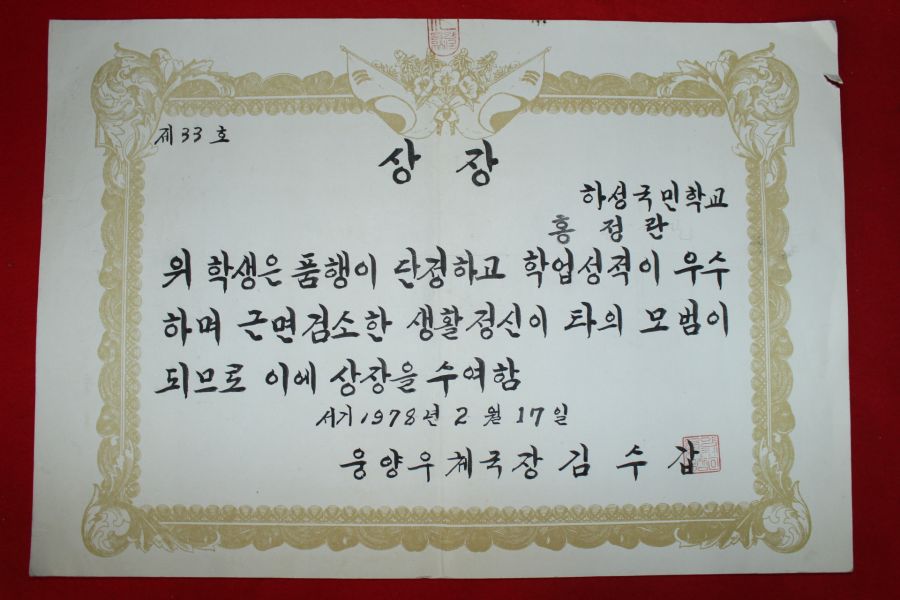 제 33 호
상 장
하성국민학교
홍 정 란
위 학생은 품행이 단정하고 학업성적이 우수
하며 근면검소한 생활정신이 타의 모범이
되므로 이에 상장을 수여함
서기 1978년 2 월 17 일
웅양우체국장 김 수 갑